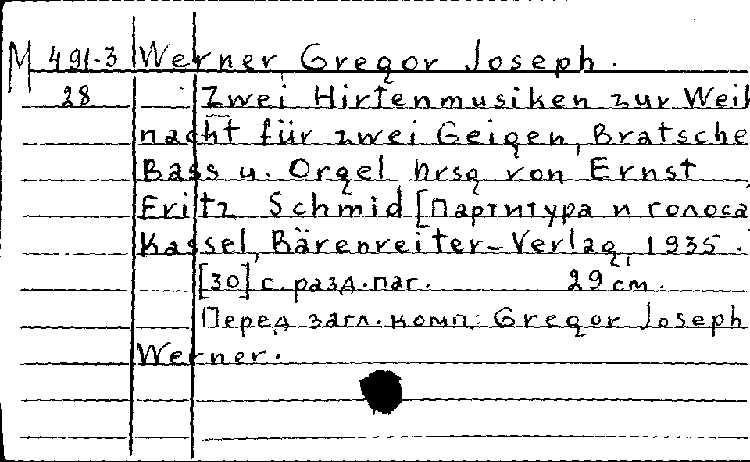 M 491-3 Werner, Gregor Joseph.
28 Zwei Hirtenmusiken zur Weih
nacht für zwei Geigen, Bratsche
Bass u. Orgel hrsg von Ernst
Fritz Schmid [Партитура и голоса
Kassel, Bärenreiter-Verlag, 1935.
[30] с. разд. паг. 29 cm.
Перед загл. комп: Gregor Joseph
Werner.